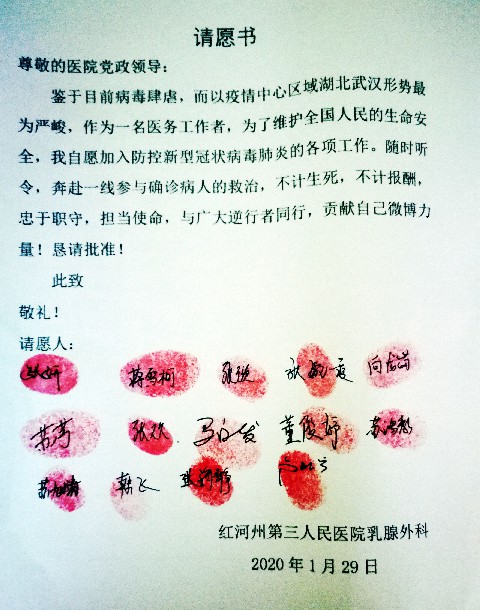 请愿书
尊敬的医院党政领导：
鉴于目前病毒肆虐，而以疫情中心区域湖北武汉形势最
为严峻，作为一名医务工作者，为了维护全国人民的生命安
全，我自愿加入防控新型冠状病毒肺炎的各项工作。随时听
令，奔赴一线参与确诊病人的救治，不计生死，不计报酬，
忠于职守，担当使命，与广大逆行者同行，贡献自己微博力
量！恳请批准！
此致
敬礼！
请愿人：
韩飞
红河州第三人民医院乳腺外科
2020年1月29日